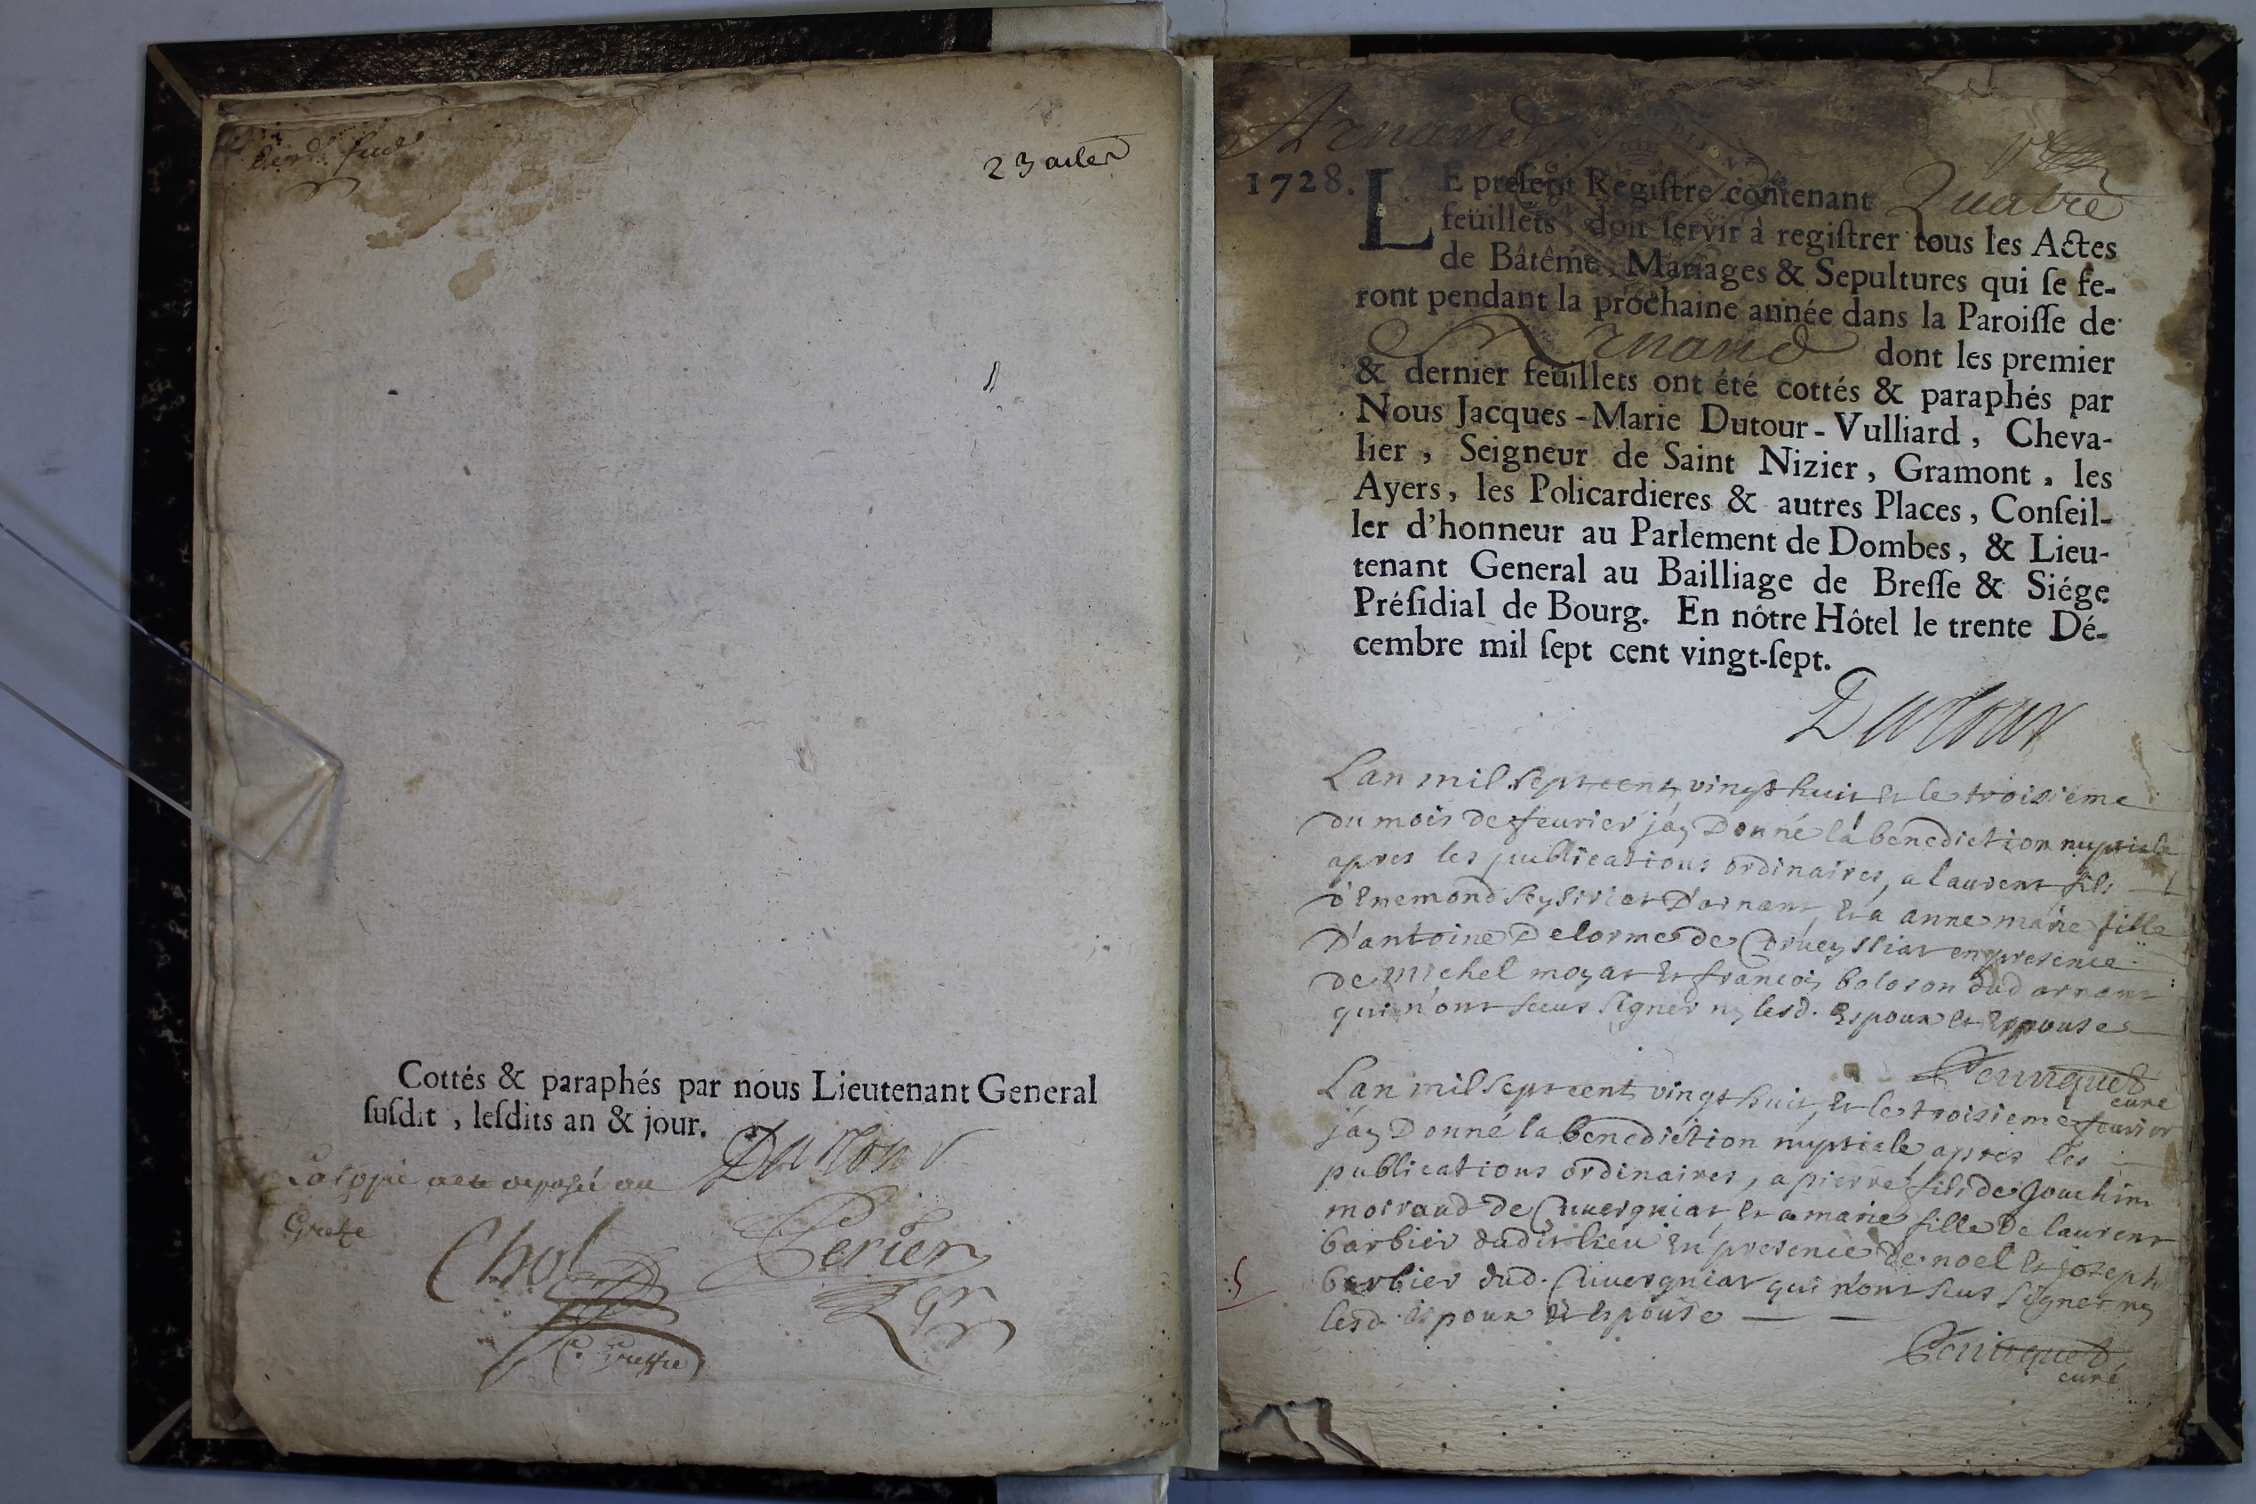 23 actes
Cottés & paraphés par nous Lieutenant General
ſuſdit, leſdits an & jour.
Dutour
La coppie a ete deposeé au
Greffe
Chol
Perier
Arnand
1728. LE preſent Regiſtre contenant Quatre
feüillets, doit ſervir à regiſtrer tous les Actes
de Bâtême, Mariages & Sepultures qui ſe fe-
ront pendant la prochaine année dans la Paroiſſe de
Arnand dont les premier
& dernier feüillets ont été cottés & paraphés par
Nous Jacques-Marie Dutour-Vulliard, Cheva-
lier, Seigneur de Saint Nizier, Gramont, les
Ayers, les Policardieres & autres Places, Conſeil-
ler d'honneur au Parlement de Dombes, & Lieu-
tenant General au Bailliage de Breſſe & Siége
Préſidial de Bourg. En nôtre Hôtel le trente Dé-
cembre mil ſept cent vingt-ſept.
Dutour
Lan mil sept cent vingt huit et le troisieme
du mois de feurier jay Donné la benediction nuptiale
apres les publications ordinaires, a laurent fils
d'Enemond D'arnant, et a anne marie fille
D'antoine Delorme de Drueyssiat en presence
de Michel moyat et francois boloson dud arnant
qui n'ont sceus signer ny lesd. Espoux et Espouse
curé
Lan mil sept cent vingt huit, et le troisieme feurier
jay Donné la benediction nuptiale, apres les
publications ordinaires, a pierre fils de Joachim
morraud de Cuuergniat, et a marie fille de laurent
barbier dudit lieu en presence de noel et joseph
barbier dud. Cuuergniat qui n'ont sceus signer ny
lesd. Espoux et Espouse
curé